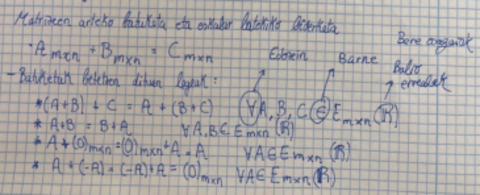 Matrizeen arteko batuketa eta eskalar bateko biderketa
· A mxn + B mxn = C mxn   Edozein   Barne   Bere osagaiak
- Batuketak betetzen dituen legeak :   Balio errealak
* (A+B) + C = A + (B+C)   ∀A, B, C ∈ E mxn (ℝ)
* A+B = B+A   ∀A, B ∈ E mxn (ℝ)
* A + (0)mxn = (0)mxn + A = A   ∀A ∈ E mxn (ℝ)
* A + (-A) = (-A) + A = (0)mxn   ∀A ∈ E mxn (ℝ)